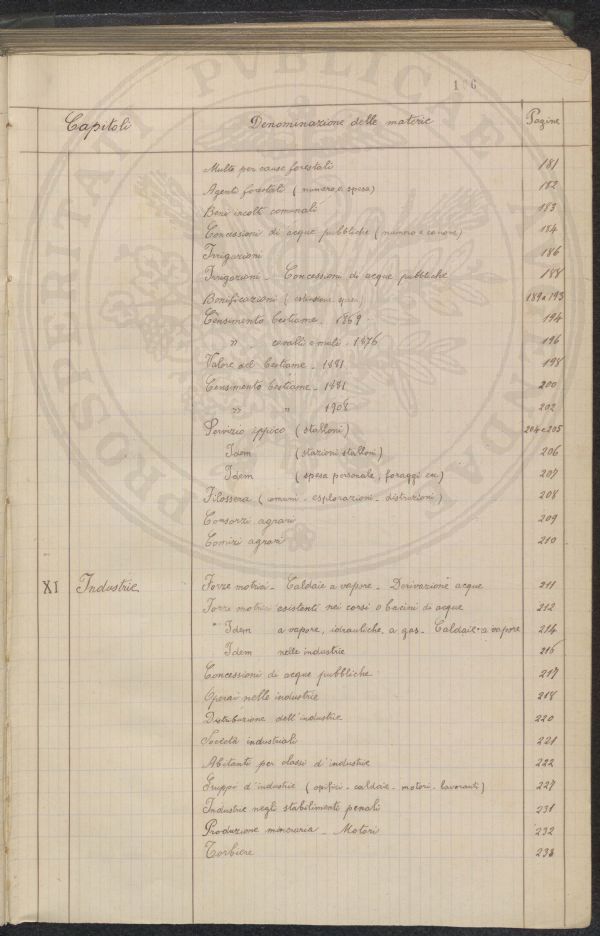 PROSPERITATI PUBLICAE AUGENDAE
1 6
Capitoli Denominazione delle materie Pagine
Multe per cause forestali 181
Agenti forestali (numero e spesa) 182
Beni incolti comunali 183
Concessioni di acque pubbliche (numero e canone) 184
Irrigazioni 186
Irrigazioni - Concessioni di acque pubbliche 188
Bonificazioni ( estensione, spese) 189 a 193
Censimento bestiame - 1869 194
" cavalli e muli - 1876 196
Valore del bestiame - 1881 198
Censimento bestiame - 1881 200
" " 1908 202
Servizio ippico (stalloni) 204 e 205
Idem (stazioni stalloni) 206
Idem (spesa personale, foraggi ecc) 207
Filossera (comuni - esplorazioni - distruzioni) 208
Consorzi agrari 209
Comizi agrari 210
XI Industrie Forze motrici - Caldaie a vapore - Derivazione acque 211
Forze motrici esistenti nei corsi o bacini di acque 212
" Idem a vapore, idrauliche, a gas - Caldaie a vapore 214
Idem nelle industrie 216
Concessioni di acque pubbliche 217
Operai nelle industrie 218
Distribuzione dell'industrie 220
Società industriali 221
Abitanti per classi d'industrie 222
Gruppi d'industrie (opifici - caldaie - motori - lavoranti) 227
Industrie negli stabilimenti penali 231
Produzione mineraria - Motori 232
Torbiere 233